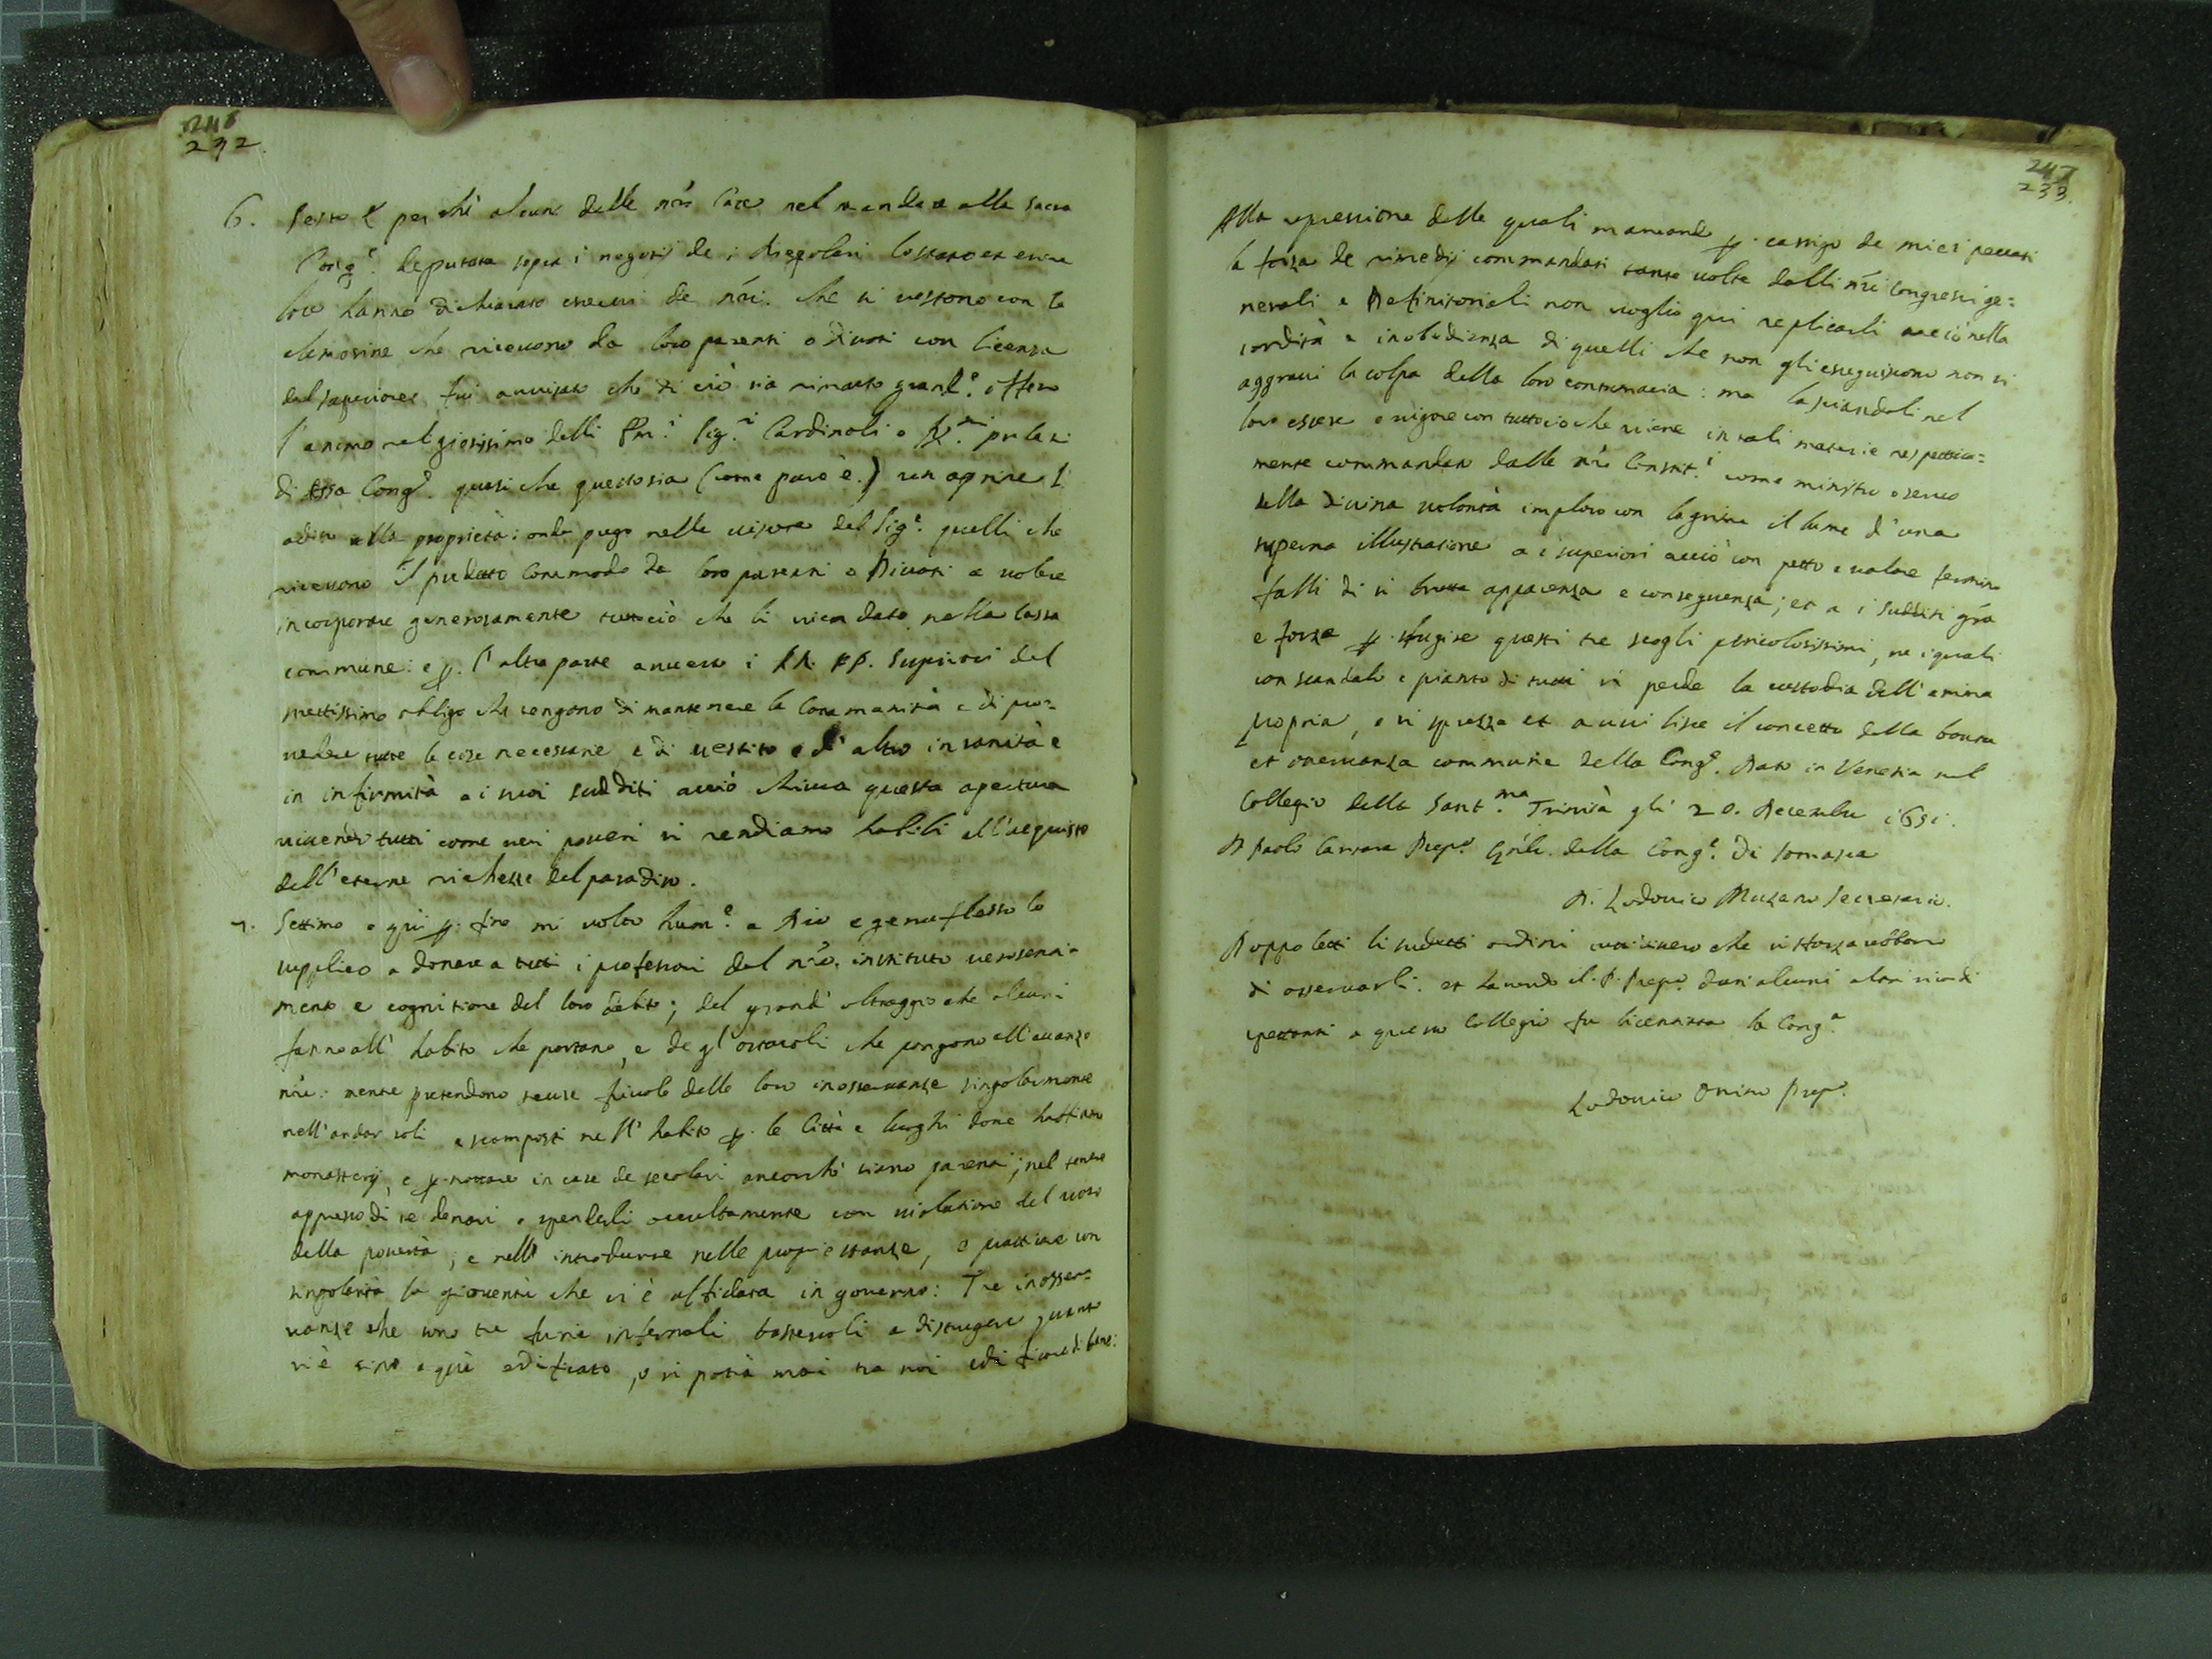 246
232.
6. Sesto e perchè alcune delle nre Case nel mandare alla sacra
Cong.e deputata sopra i negotij de i Regolari lo stato et entrate
loro hanno dichiarato che de nri. che si vestono con le
elemosine che ricevono da loro parenti o divoti con licenza
del superiore fui avvisato che di ciò sia rimasto grand.e offeso
l'animo religiosissimo delli Em.i Sig.i Cardinali e prelati
di essa Cong.e quasi che questo sia (come pare è.) un aprire l
adito alla proprietà: onde prego nelle viscere del Sig.e quelli che
ricevono il predetto commodo da loro parenti o Divoti a volere
incorporare generosamente tutto ciò che li vien dato nella cassa
commune: e p. l'altra parte avverto i RR. PP. Superiori del
strettissimo obligo che tengono di mantenere la Communità e di pro=
vedere tutte le cose necessarie, e di vestito e d'altro in sanità e
in infirmità a i suoi sudditi acciò chiusa questa apertura
vivendo tutti come veri poveri si rendiamo habili all'acquisto
dell'eterne richezze del paradiso.
7. Settimo e qui p. fine mi volto hum.e a Dio e genuflesso lo
supplico a donare a tutti i professori del nro. instituto vero senti=
mento e cognitione del loro debito; del grand' oltraggio che alcuni
fanno all' habito che portano, e de gl'ostacoli che pongono all'avanzo
nro: mentre pretendono scuse frivole delle loro inosservanze singolarmente
nell'andar soli e scomposti nell' habito p. le Città e luoghi dove habitano
monasterij, e p. nottare in case de secolari ancorchè siano parenti; nel tenere
appresso di se denari e spenderli occultamente con violatione del voto
della povertà; e nell' introdurre nelle proprie stanze, e pratticare con
singolarità la gioventù che ci è affidata in governo: Tre inosser=
vanze che sono tre furie infernali bastevoli a distrugere quanto
si è sino a qui edificato, e si potrà mai tra noi edificare di bene:
247
233.
Alla repressione delle quali mancando p. castigo de miei peccati
la forza de rimedij commandati tante volte dalli nri Congressi ge=
nerali e Definitoriali non voglio qui replicarli acciò nella
sordità e inobedienza di quelli che non gli esseguiscono non si
aggravi la colpa della loro contumacia: ma lasciandoli nel
loro essere e vigore con tutto ciò che viene in tali materie respettiva=
mente commandato dalle nre Constit.i come ministro e servo
della divina volontà imploro con lagrime il lume d'una
superna illustratione a i superiori acciò con petto e valore
falli di si brutta apparenza e conseguenza; et a i sudditi gra
e forza p. sfugire questi tre scogli pericolosissimi, ne i quali
con scandalo e pianto di tutti si perde la custodia dell'anima
propria, e si sprezza et avvilisce il concetto della bontà
et osservanza commune della Cong.e Dato in Venetia nel
Collegio della Sant.ma Trinità gli 20. Decembre 1651.
D Paolo Carrara Prep.o Gnle. della Cong.e di Somasca
D. Lodovico Muzano Secretario.
Doppo letti li sudetti ordini che
di osservarli. et havendo il P. Prepo. dati alcuni altri ricordi
spettanti a questo Collegio fu licentiata la Cong.e
Lodovico Prepo.